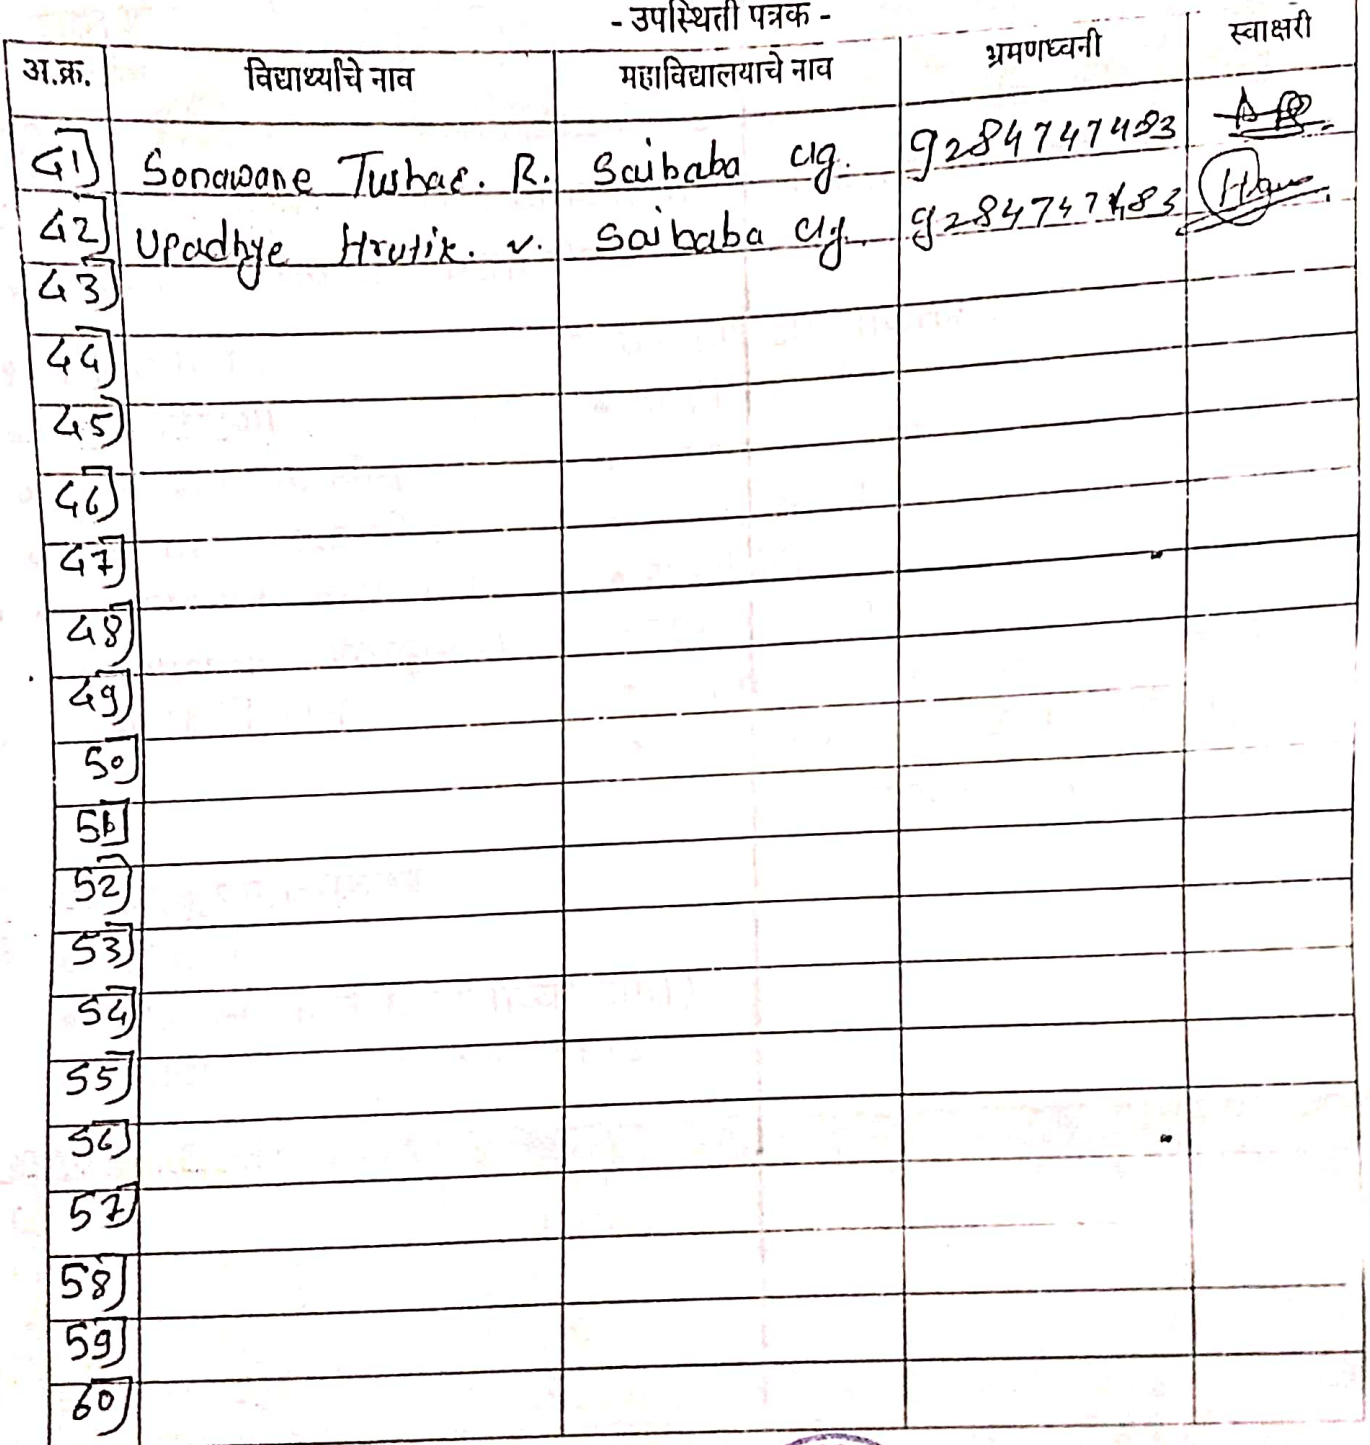 - उपस्थिती पत्रक -
अ.क्र. विद्यार्थ्याचे नाव महाविद्यालयाचे नाव भ्रमणध्वनी स्वाक्षरी
41) Sonawane Tushar. R. Saibaba clg. 9284747483
42) Upadhye Hrutik. v. Saibaba clg. 9284747483
43)
44)
45)
46)
47)
48)
49)
50)
51)
52)
53)
54)
55)
56)
57)
58)
59)
60)